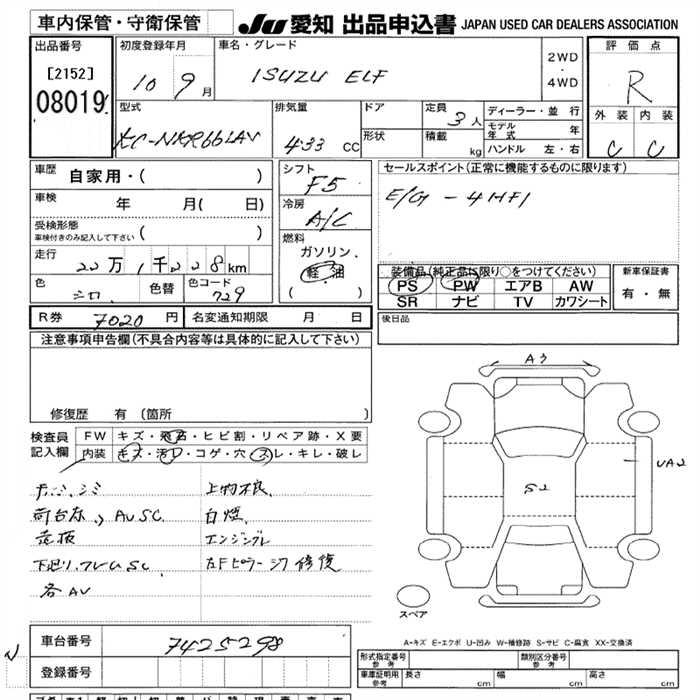 車内保管・守衛保管
JU 愛知 出品申込書 JAPAN USED CAR DEALERS ASSOCIATION
出品番号
[2152]
08019
初度登録年月
10 9月
車名・グレード
ISUZU ELF
2WD
・
4WD
評価点
R
外装 内装
C C
型式
KC-NKR66LAV
排気量
433 CC
ドア
形状
定員 3人
積載 kg
ディーラー・並行
モデル年式 年
ハンドル 左・右
車歴 自家用・( )
車検 年 月( 日)
受検形態
車検付きのみ記入して下さい ( )
走行 22万1千228km
色 シロ 色替 色コード 729
シフト F5
冷房 A/C
燃料
ガソリン
軽油
( )
セールスポイント(正常に機能するものに限ります)
E/G - 4HF1
装備品(純正品に限り○をつけてください)
PS PW エアB AW
SR ナビ TV カワシート
新車保証書
有・無
R券 7020円 名変通知期限 月 日
後日品
注意事項申告欄(不具合内容等は具体的に記入して下さい)
修復歴 有(箇所
検査員記入欄
FW キズ・飛石・ヒビ割・リペア跡・X要
内装 キズ・汚レ・コゲ・穴・スレ・キレ・破レ
上物不良
荷台床 AUSC
白煙
下廻り フレUSC
左Fピラー 修復
各AU
Aう
UA2
S2
スペア
A-キズ E-エクボ U-凹み W-補修跡 S-サビ C-腐食 XX-交換済
車台番号 7425298
登録番号
形式指定番号 参考
類別区分番号 参考
車庫証明用 参考 長さ cm 幅 cm 高さ cm